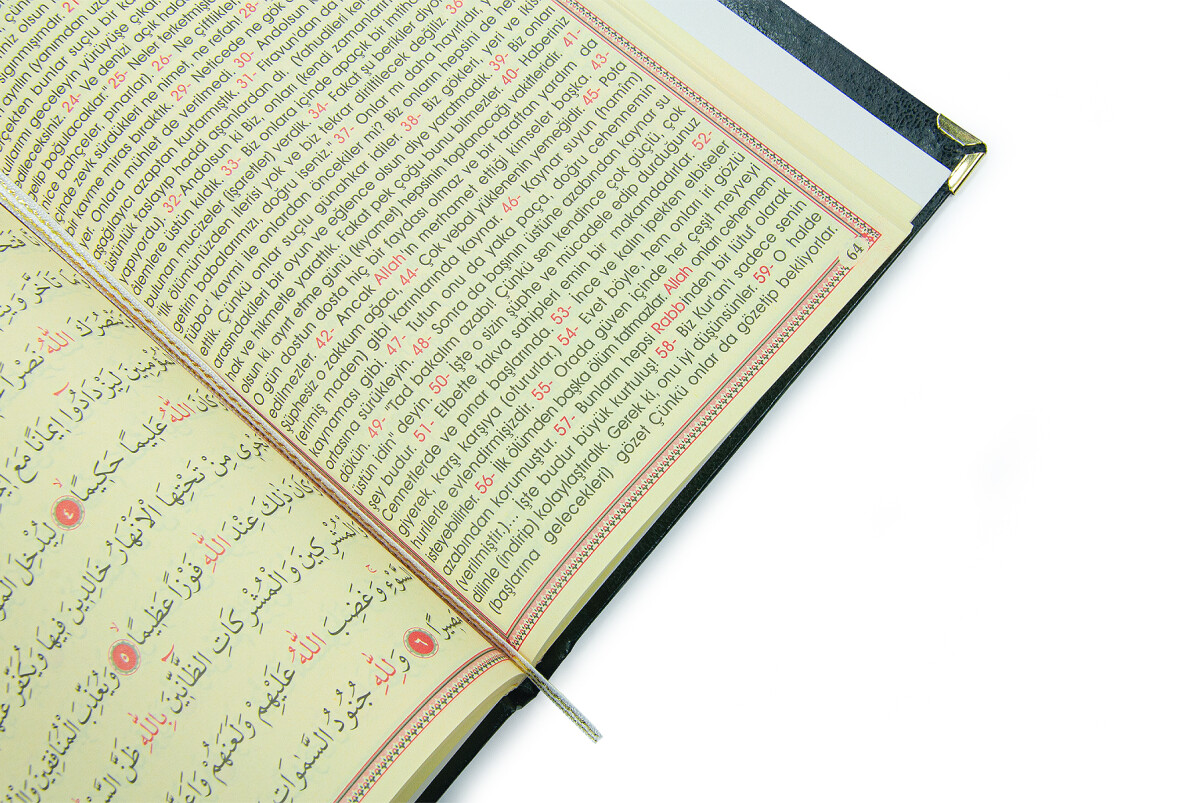 sığınmışımdır. 21-
ayrılın (yanımdan
gerçekten bunlar suçlu bir
kullarımı geceleyin yürüyüşe çıkar
edileceksiniz. 24- Ve denizi açık
boğulacaklar." 25- Neler terketmişler
nice bahçeler, pınarlar). 26- Ne çiftlikler
içinde zevk sürdükleri ne nimet, ne refah! 28-
kavme miras bıraktık. 29- Neticede ne gök
yer. Onlara mühlet de verilmedi. 30- Andolsun
aşağılayıcı azaptan kurtarmıştık. 31- Firavun'dan
üstünlük taslayıp haddi aşanlardan
alemlere üstün kıldık. 32- Andolsun ki Biz, onları (kendi zamanların
bulunan mucizeler (işaretler) verdik. 33- Biz onlara içinde apaçık bir imtihan
apıyordu. 34- Fakat şu berikiler diyorlar
ilk ölümümüzden ilerisi yok ve biz tekrar diriltilecek değiliz. 36-
getirin babalarımızı, doğru iseniz." 37- Onlar mı daha hayırlıdır, yoksa
Tübba' kavmi ile onlardan öncekiler mi? Biz onların hepsini de yok
ettik. Çünkü onlar suçlu günahkar idiler. 38- Biz gökleri, yeri ve iki
arasındakileri bir oyun ve eğlence olsun diye yaratmadık. 39- Biz onları
hak ve hikmetle yarattık. Fakat pek çoğu bunu bilmezler. 40- Haberiniz
olsun ki ayırt etme günü (kıyamet) hepsinin toplanacağı vakitleridir. 41-
O gün dostun dosta hiç bir faydası olmaz ve bir taraftan yardım da
edilmezler. 42- Ancak Allah'ın merhamet ettiği kimseler başka. 43-
şüphesiz o zakkum ağacı. 44- Çok vebal yüklenenin yemeğidir. 45- Pota
(erimiş maden) gibi karınlarında kaynar. 46- Kaynar suyun (hamim)
kaynaması gibi. 47- Tutun onu da yaka paça, doğru cehennemin
ortasına sürükleyin. 48- Sonra da başının üstüne azabından kaynar su
dökün! 49- "Tad bakalım azabı! Çünkü sen kendince çok güçlü, çok
üstün idin" deyin. 50- İşte o sizin şüphe ve mücadele edip durduğunuz
şey budur. 51- Elbette takva sahipleri emin bir makamdadırlar. 52-
Cennetlerde ve pınar başlarında. 53- İnce ve kalın ipekten elbiseler
giyerek, karşı karşıya (otururlar.) 54- Evet böyle, hem onları iri gözlü
hurilerle evlendirmişizdir. 55- Orada güven içinde her çeşit meyveyi
isteyebilirler. 56- İlk ölümden başka ölüm tatmazlar. Allah onları cehennem
azabından korumuştur. 57- Bunların hepsi Rabbinden bir lütuf olarak
(verilmiştir.)... İşte budur büyük kurtuluş! 58- Biz Kur'an'ı sadece senin
dilinle (indirip) kolaylaştırdık. Gerek ki, onu iyi düşünsünler. 59- O halde
(başlarına gelecekleri) gözet Çünkü onlar da gözetip bekliyorlar.
اللّٰهُ نَصْرًا
لِيَزْدَادُوا اِيمَانًا مَعَ
اللّٰهُ عَلِيمًا حَكِيمًا ٤ لِيُدْخِلَ
مِنْ تَحْتِهَا الْاَنْهَارُ خَالِدِينَ فِيهَا وَيُكَفِّرَ
ذٰلِكَ عِنْدَ اللّٰهِ فَوْزًا عَظِيمًا ٥ وَيُعَذِّبَ الْمُنَافِقِينَ
وَالْمُشْرِكِينَ وَالْمُشْرِكَاتِ الظَّانِّينَ بِاللّٰهِ ظَنَّ
السَّوْءِ وَغَضِبَ اللّٰهُ عَلَيْهِمْ وَلَعَنَهُمْ وَاَعَدَّ
مَصِيرًا ٦ وَلِلّٰهِ جُنُودُ السَّمٰوَاتِ